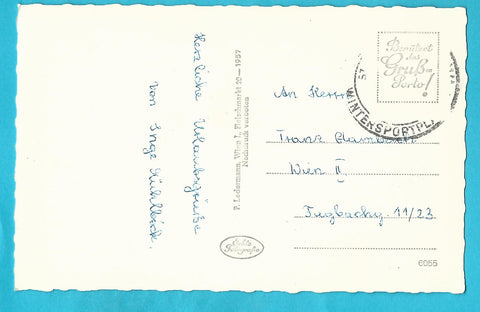 Herzliche Urlaubsgrüße
von Inge
P. Ledermann, Wien I., Fleischmarkt 20 — 1957
Nachdruck verboten
Echte Fotografie
Benützet
das
Gruß-
Porto!
WINTERSPORTPL
An Herrn
Franz
Wien II
11/23
6055